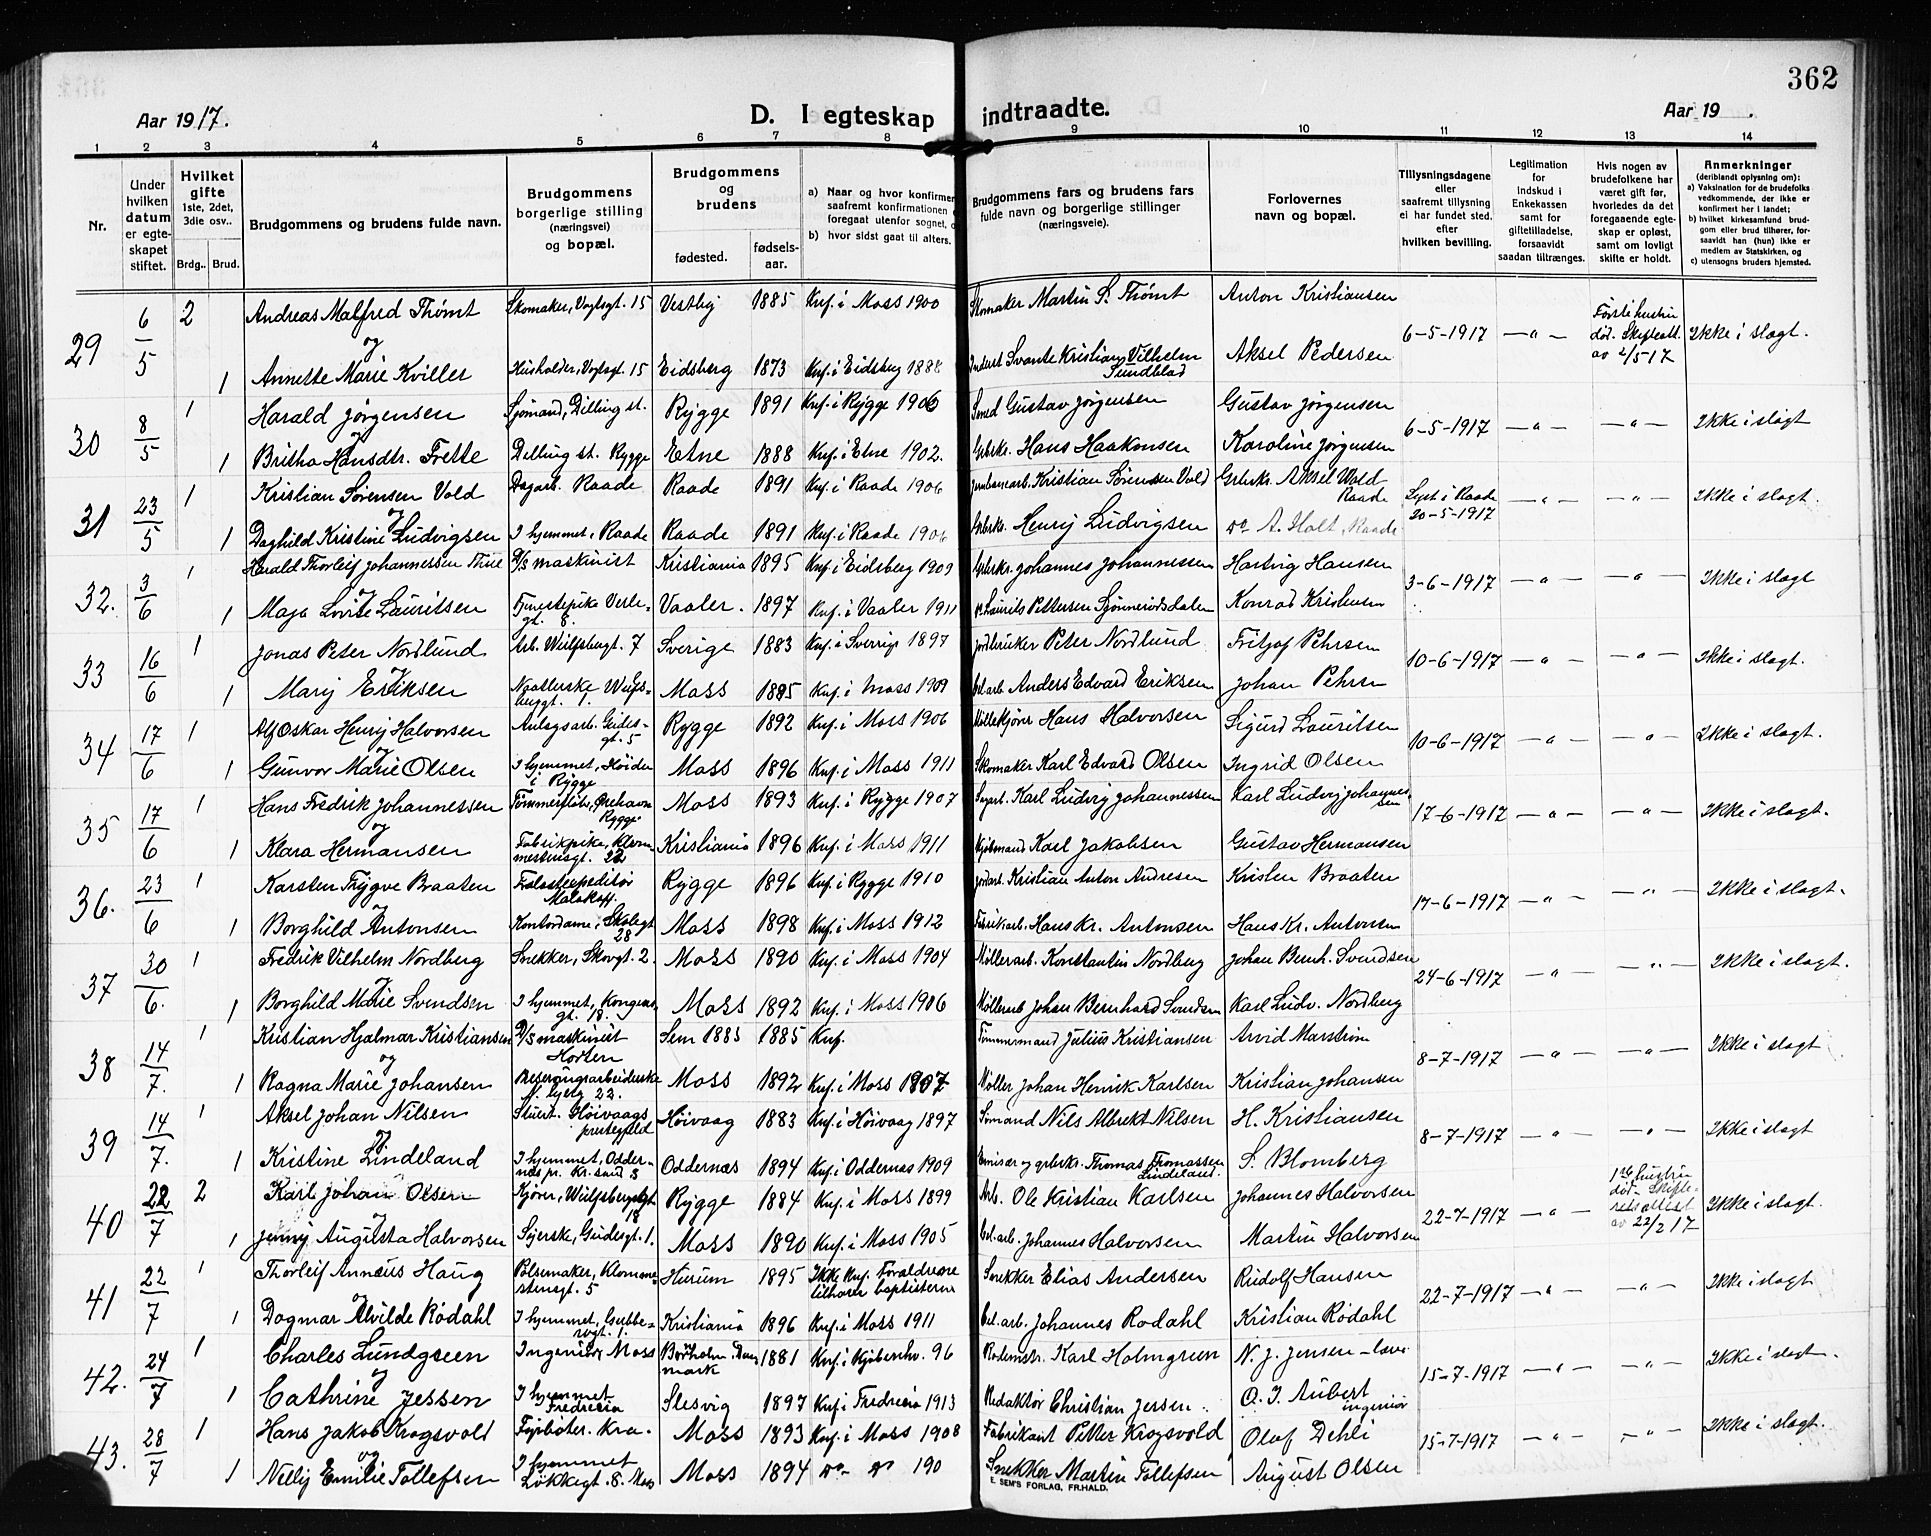 362
Aar 1917.
D. Iegteskap indtraadte.
Aar 19 .
1 2 3 4 5 6 7 8 9 10 11 12 13 14
Nr.
Under hvilken datum er egteskapet stiftet.
Hvilket gifte 1ste, 2det, 3die osv..
Brdg.. Brud.
Brudgommens og brudens fulde navn.
Brudgommens borgerlige stilling (næringsvei) og bopæl.
Brudgommens og brudens
fødested. fødselsaar.
a) Naar og hvor konfirmer
saafremt konfirmationen
foregaat utenfor sognet,
b) hvor sidst gaat til alters.
Brudgommens fars og brudens fars fulde navn og borgerlige stillinger (næringsveie).
Forlovernes navn og bopæl.
Tillysningsdagene eller saafremt tillysning ei har fundet sted. efter hvilken bevilling.
Legitimation for Indskud i Enkekassen samt for giftetilladelse, forsaavidt saadan tiltrænges.
Hvis nogen av brudefolkene har været gift før, hvorledes da det foregaaende egteskap er opløst, samt om lovligt skifte er holdt.
Anmerkninger (deriblandt oplysning om): a) Vaksination for de brudefolks vedkommende, der ikke er konfirmert her i landet; b) hvilket kirkesamfund brudgom eller brud tilhører, forsaavidt han (hun) ikke er medlem av Statskirken, og c) utensogns bruders hjemsted.
29 6/5 2 Andreas Malfred Thømt Skomaker, Vogtsgt. 15 Vestby 1885 Knf. i Moss 1900 Skomaker Martin S. Thømt Anton Kristiansen 6-5-1917 —"— Første hustru død. Skifteatt. av 2/5 17 Ikke i slægt.
og
1 Annette Marie Kviller Husholder, Vogtsgt. 15 Eidsberg 1873 Knf. i Eidsberg 1888 Svante Kristian Vilhelm Sundblad Aksel Pedersen
30 8/5 1 Harald Jørgensen Sjømand, Dilling st. Rygge 1891 Knf. i Rygge 1906 Smed Gustav Jørgensen Gustav Jørgensen 6-5-1917 —"— —"— Ikke i slægt
og
1 Britha Hansdtr. Frette Dilling st. Rygge Etne 1888 Knf. i Etne 1902. Grbrkr. Hans Haakonsen Karoline Jørgensen
31 23/5 1 Kristian Sørensen Vold Dagarb. Raade Raade 1891 Knf. i Raade 1906 Jernbanearb. Kristian Sørensen Vold Grbrkr. Aksel Wold Raade Lyst i Raade 20-5-1917 —"— —"— Ikke i slægt.
og
1 Daghild Kristine Ludvigsen I hjemmet, Raade Raade 1891 Knf. i Raade 1906 Grbrkr. Henry Ludvigsen Do A. Holt, Raade
32. 3/6 1 Harald Thorleif Johannessen Thue D/S maskinist Kristiania 1895 Knf. i Eidsberg 1909 Grbrkr. Johannes Johannessen Hartvig Hansen 3-6-1917 —"— —"— Ikke i slægt
og
1 Maga Lovise Lauritsen Tjenestepike Verlegt. 8. Vaaler. 1897 Knf. i Vaaler 1911 Laurits Pettersen Sjønnerødsdalen Konrad Kristensen
33 16/6 1 Jonas Peter Nordlund Arb. Wulfsbergt. 7 Sverige 1883 Knf. i Sverrig 1897 Jordbruker Peter Nordlund Fritjof Pehrsen 10-6-1917 —"— —"— Ikke i slægt.
og
1 Mary Eriksen Wulfsbergt. 7. Moss 1885 Knf. i Moss 1909 Anders Edvard Eriksen Johan Pehrsen
34 17/6 1 Alf Oskar Henry Halvorsen Anlægsarb. Gudesgt. 5 Rygge 1892 Knf. i Moss 1906 Møllekjører Hans Halvorsen Sigurd Lauritsen 10-6-1917 —"— —"— Ikke i slægt.
og
1 Gunvor Marie Olsen I hjemmet, Høiden i Rygge Moss 1896 Knf. i Moss 1911 Skomaker Karl Edvard Olsen Ingrid Olsen
35 17/6 1 Hans Fredrik Johannessen Tømmerfløter, Ørehavn Rygge Moss 1893 Knf. i Rygge 1907 Sagarb. Karl Ludvig Johannessen Karl Ludvig Johannessen 17-6-1917 —"— —"— Ikke i slægt.
og
1 Klara Hermansen Fabrikpike, Klommestensgt. 22 Kristiania 1896 Knf. i Moss 1911 Sjømand Karl Jakobsen Gustav Hermansen
36. 23/6 1 Karsten Trygve Braaten Rygge 1896 Knf. i Rygge 1910 Jordarb. Kristian Anton Andresen Kristen Braaten 17-6-1917 —"— —"— Ikke i slægt.
og
1 Borghild Antonsen Kontordame, Skolegt 28 Moss 1898 Knf. i Moss 1912 Fabrikarb. Hans Kr. Antonsen Hans Kr. Antonsen
37 30/6. 1 Fredrik Vilhelm Nordberg Snekker, Skovgt. 2. Moss 1890 Knf. i Moss 1904 Møllerarb. Konstantin Nordberg Johan Bernh. Svendsen 24-6-1917 —"— —"— Ikke i slægt.
og
1 Borghild Marie Svendsen I hjemmet, Kongensgt. 18. Moss 1892 Knf. i Moss 1906 Møllerarb Johan Bernhard Svendsen Karl Ludv. Nordberg
38 14/7. 1 Kristian Hjalmar Kristiansen D/S maskinist Horten Sem 1885 1885 Knf. Tømmermand Julius Kristiansen Arvid Marstrøm 8-7-1917 —"— —"— Ikke i slægt
og
1 Ragna Marie Johansen 22. Moss 1892 Knf. i Moss 1907 Møller Johan Henrik Karlsen Kristian Johansen
39 14/7. 1 Aksel Johan Nilsen Stuert. Høivaags prestegjeld Høivaag 1883 Knf. i Høivaag 1897 Sømand Nils Albrekt Nilsen H. Kristiansen 8-7-1917 —"— —"— Ikke i slægt
og
1 Kristine Lindeland I hjemmet, Oddernes p. Kr.sand S Oddernæs 1894 Knf. i Oddernæs 1909 Emisær og grbrkr. Thomas Thomassen Lindeland. S. Blomberg
40 22/7 2 Karl Johan Olsen Kjører, Wulfsbergsgt 18 Rygge 1884 Knf. i Moss 1899 Arb. Ole Kristian Karlsen Johannes Halvorsen 22-7-1917 —"— 1ste hustru død - Skifteretsattest av 22/2 17 Ikke i slægt.
og
1 Jenny Augusta Halvorsen Syerske, Gudesgt. 1. Moss 1890 Knf. i Moss 1905 Johannes Halvorsen Martin Halvorsen
41 22/7 1 Thorleif Annæus Haug Pølsemaker, Klommestensgt. 5 Hurum 1895 Ikke Knf. Forældrene tilhører baptisterne Snekker Elias Andersen Rudolf Hansen 22-7-1917 —"— —"— Ikke i slægt
og
1 Dagmar Alvilde Rødahl I hjemmet, Gubbesogt. 1. Kristiania 1896 Knf. i Moss 1911 Johannes Rødahl Kristian Rødahl
42. 24/7 1 Charles Lundgreen Ingeniør, Moss Bornholm. Danmark 1881 Knf. i Kjøbenhv. 96 Rodemstr. Karl Holmgreen N. J. Jensen 15-7-1917 —"— —"— Ikke i slægt.
og
1 Cathrine Jessen I hjemmet Fredericia Slesvig 1897 Knf. i Fredricia 1913 Redaktør Christian Jessen O. J. Aubert ingeniør
43. 28/7 1 Hans Jakob Krogsvold Fyrbøter. Kra. Moss 1893 Knf. i Moss 1908 Fabrikant Petter Krogsvold Olaf Dehli 15-7-1917 —"— —"— Ikke i slægt.
og
1 Nelly Emilie Tollefsen I hjemmet Løkkegt. 8. Moss Moss 1894 Do- Do 190 Snekker Martin Tollefsen August Olsen
E. SEM'S FORLAG, FR.HALD.